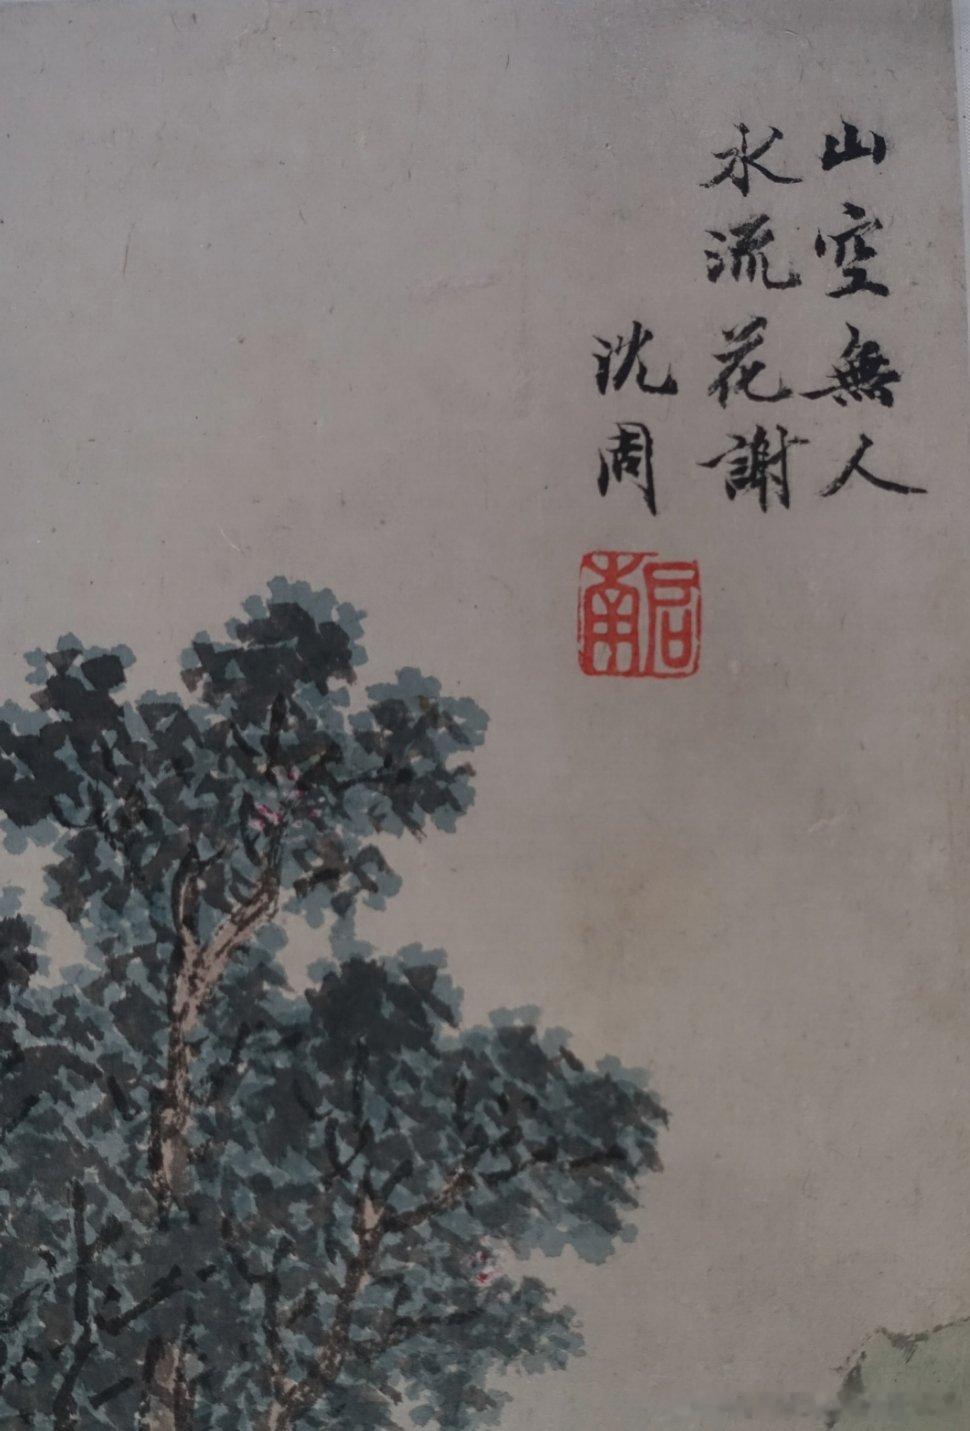 山空無人
水流花謝
沈周
启南